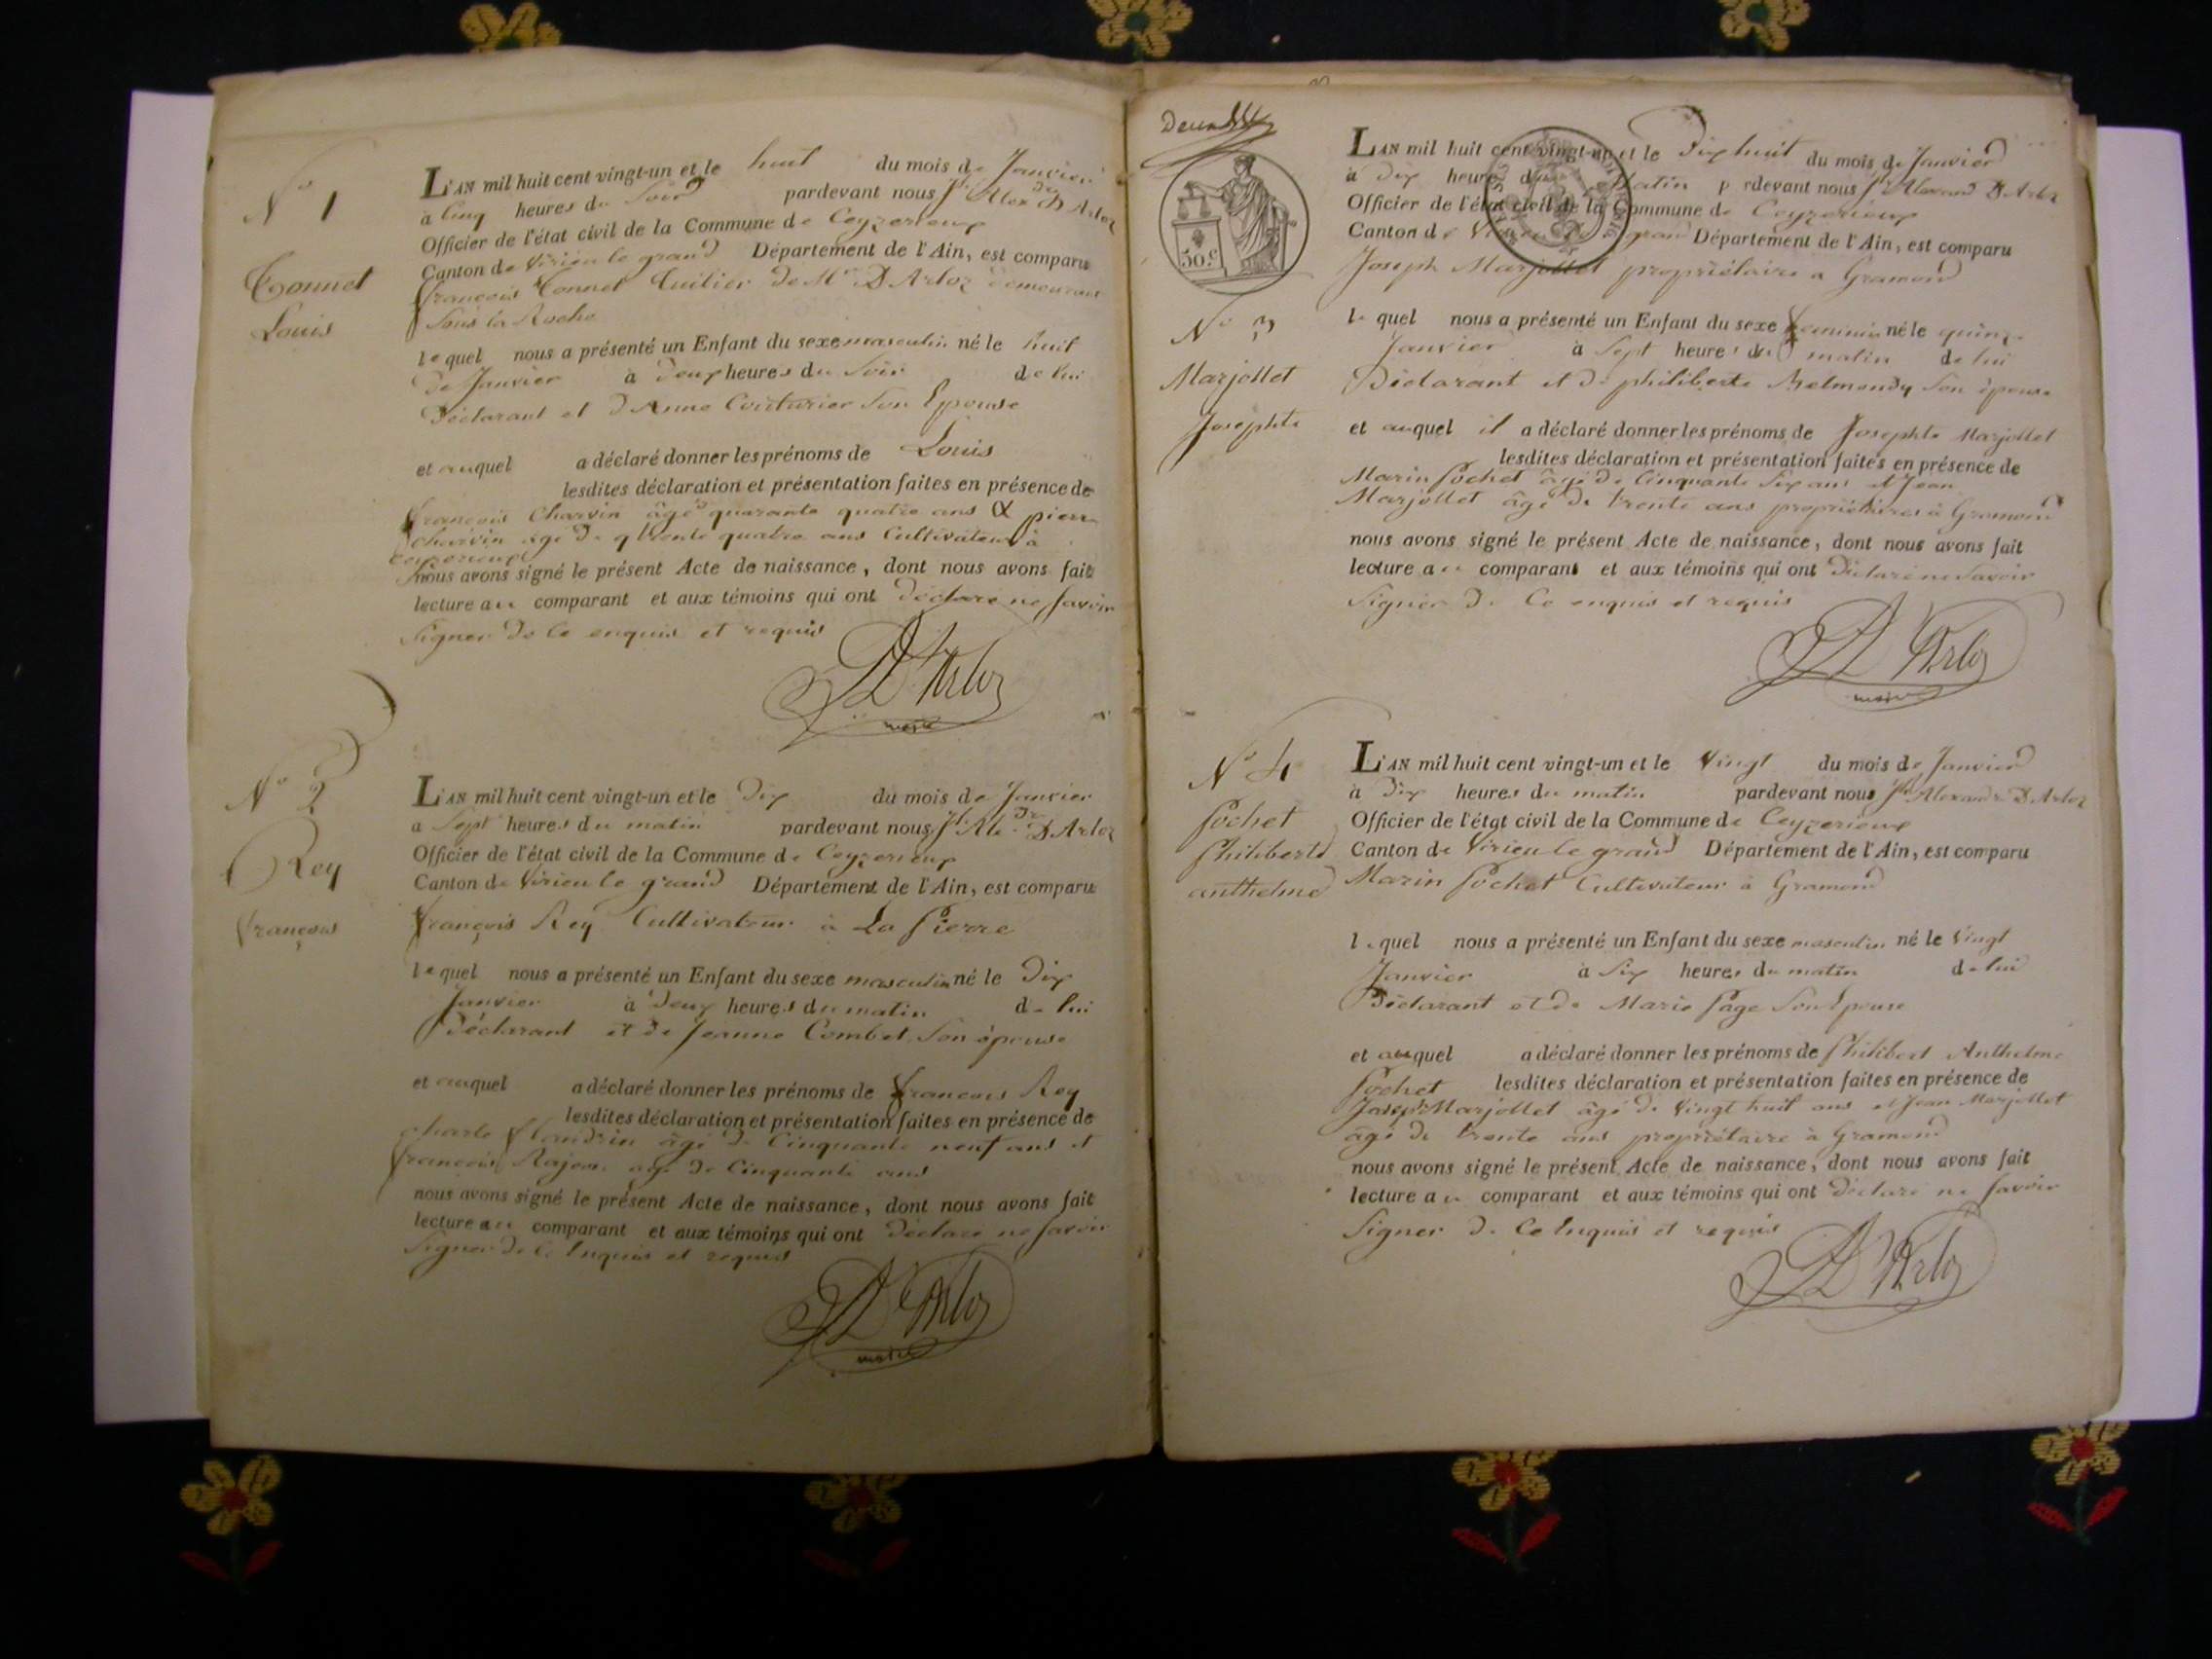 N° 1
Tonnet
Louis
L'AN mil huit cent vingt-un et le huit du mois de Janvier
à Cinq heures du Soir pardevant nous Jh Alexdre D'Arloz
Officier de l'état civil de la Commune de Ceyzerieux
Canton de Virieu le grand Département de l'Ain, est comparu
françois Tonnet tuilier de Mr D'Arloz demeurant
Sous la Roche
lequel nous a présenté un Enfant du sexe masculin né le huit
de Janvier à deux heures du Soir de lui
Déclarant et d'Anne Couturier Son Epouse
et auquel a déclaré donner les prénoms de Louis
lesdites déclaration et présentation faites en présence de
françois Charvin âgé quarante quatre ans & pierre
Charvin agé de trente quatre ans Cultivateurs à
Ceyzerieux
nous avons signé le présent Acte de naissance, dont nous avons fait
lecture au comparant et aux témoins qui ont déclaré ne Savoir
Signer de Ce enquis et requis
D'Arloz
maire
N° 2
Rey
françois
L'AN mil huit cent vingt-un et le Dix du mois de Janvier
a Sept heures du matin pardevant nous Jh Ale dre D'Arloz
Officier de l'état civil de la Commune de Ceyzerieux
Canton de Virieu le grand Département de l'Ain, est comparu
françois Rey Cultivateur à La Pierre
lequel nous a présenté un Enfant du sexe masculin né le Dix
Janvier à deux heures du matin de lui
Déclarant et de Jeanne Combet Son épouse
et auquel a déclaré donner les prénoms de francois Rey
lesdites déclaration et présentation faites en présence de
charle flandrin âgé de Cinquante neuf ans et
francois Rajon agé de Cinquante ans
nous avons signé le présent Acte de naissance, dont nous avons fait
lecture au comparant et aux témoins qui ont déclaré ne Savoir
Signer de Ce Enquis et requis
D'Arloz
maire
50.c
N° 3
Marjollet
Josephte
L'AN mil huit cent vingt-un et le Dix huit du mois de Janvier
à Dix heures du Matin p rdevant nous Jh Alexand D'Arloz
Officier de l'état civil de la Commune de Ceyzerieux
Canton de Virieu le grand Département de l'Ain, est comparu
Joseph Marjollet propriétaire a Gramond
lequel nous a présenté un Enfant du sexe feminin né le quinze
Janvier à Sept heures du matin de lui
Déclarant et de philiberte Belmondy Son épouse
et auquel il a déclaré donner les prénoms de Josephte Marjollet
lesdites déclaration et présentation faites en présence de
Marin Pochet âgé de Cinquante Six ans et Jean
Marjollet âgé de trente ans propriétaires à Gramond
nous avons signé le présent Acte de naissance, dont nous avons fait
lecture au comparant et aux témoins qui ont Déclaré ne Savoir
Signer de Ce enquis et requis
D'Arloz
maire
N° 4
Pochet
Philibert
anthelme
L'AN mil huit cent vingt-un et le Vingt du mois de Janvier
à Dix heures du matin pardevant nous Jh Alexandre D'Arloz
Officier de l'état civil de la Commune de Ceyzerieux
Canton de Virieu le grand Département de l'Ain, est comparu
Marin Pochet Cultivateur à Gramond
lequel nous a présenté un Enfant du sexe masculin né le Vingt
Janvier à Six heures du matin de lui
Déclarant et de Marie Page Son Epouse
et auquel a déclaré donner les prénoms de Philibert Anthelme
Pochet lesdites déclaration et présentation faites en présence de
Joseph Marjollet âgé de Vingt huit ans et Jean Marjollet
âgé de trente ans propriétaire à Gramond
nous avons signé le présent Acte de naissance, dont nous avons fait
lecture au comparant et aux témoins qui ont déclaré ne Savoir
Signer de Ce Enquis et requis
D'Arloz